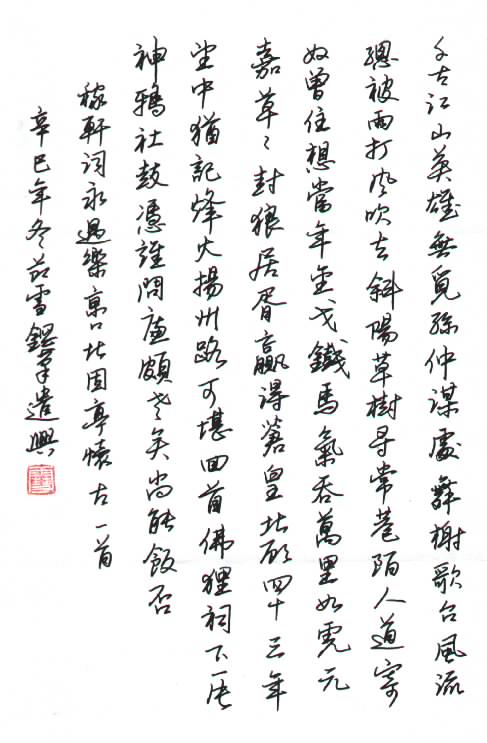 千古江山英雄無覓孫仲謀處舞榭歌台風流
總被雨打風吹去斜陽草樹尋常巷陌人道寄
奴曾住想當年金戈鐵馬氣吞萬里如虎元
嘉草々封狼居胥贏得蒼皇北顧四十三年
望中猶記烽火揚州路可堪回首佛狸祠下一片
神鴉社鼓憑誰問廉頗老矣尚能飯否
稼軒詞永遇樂京口北固亭懷古一首
辛巳年冬雪遣興